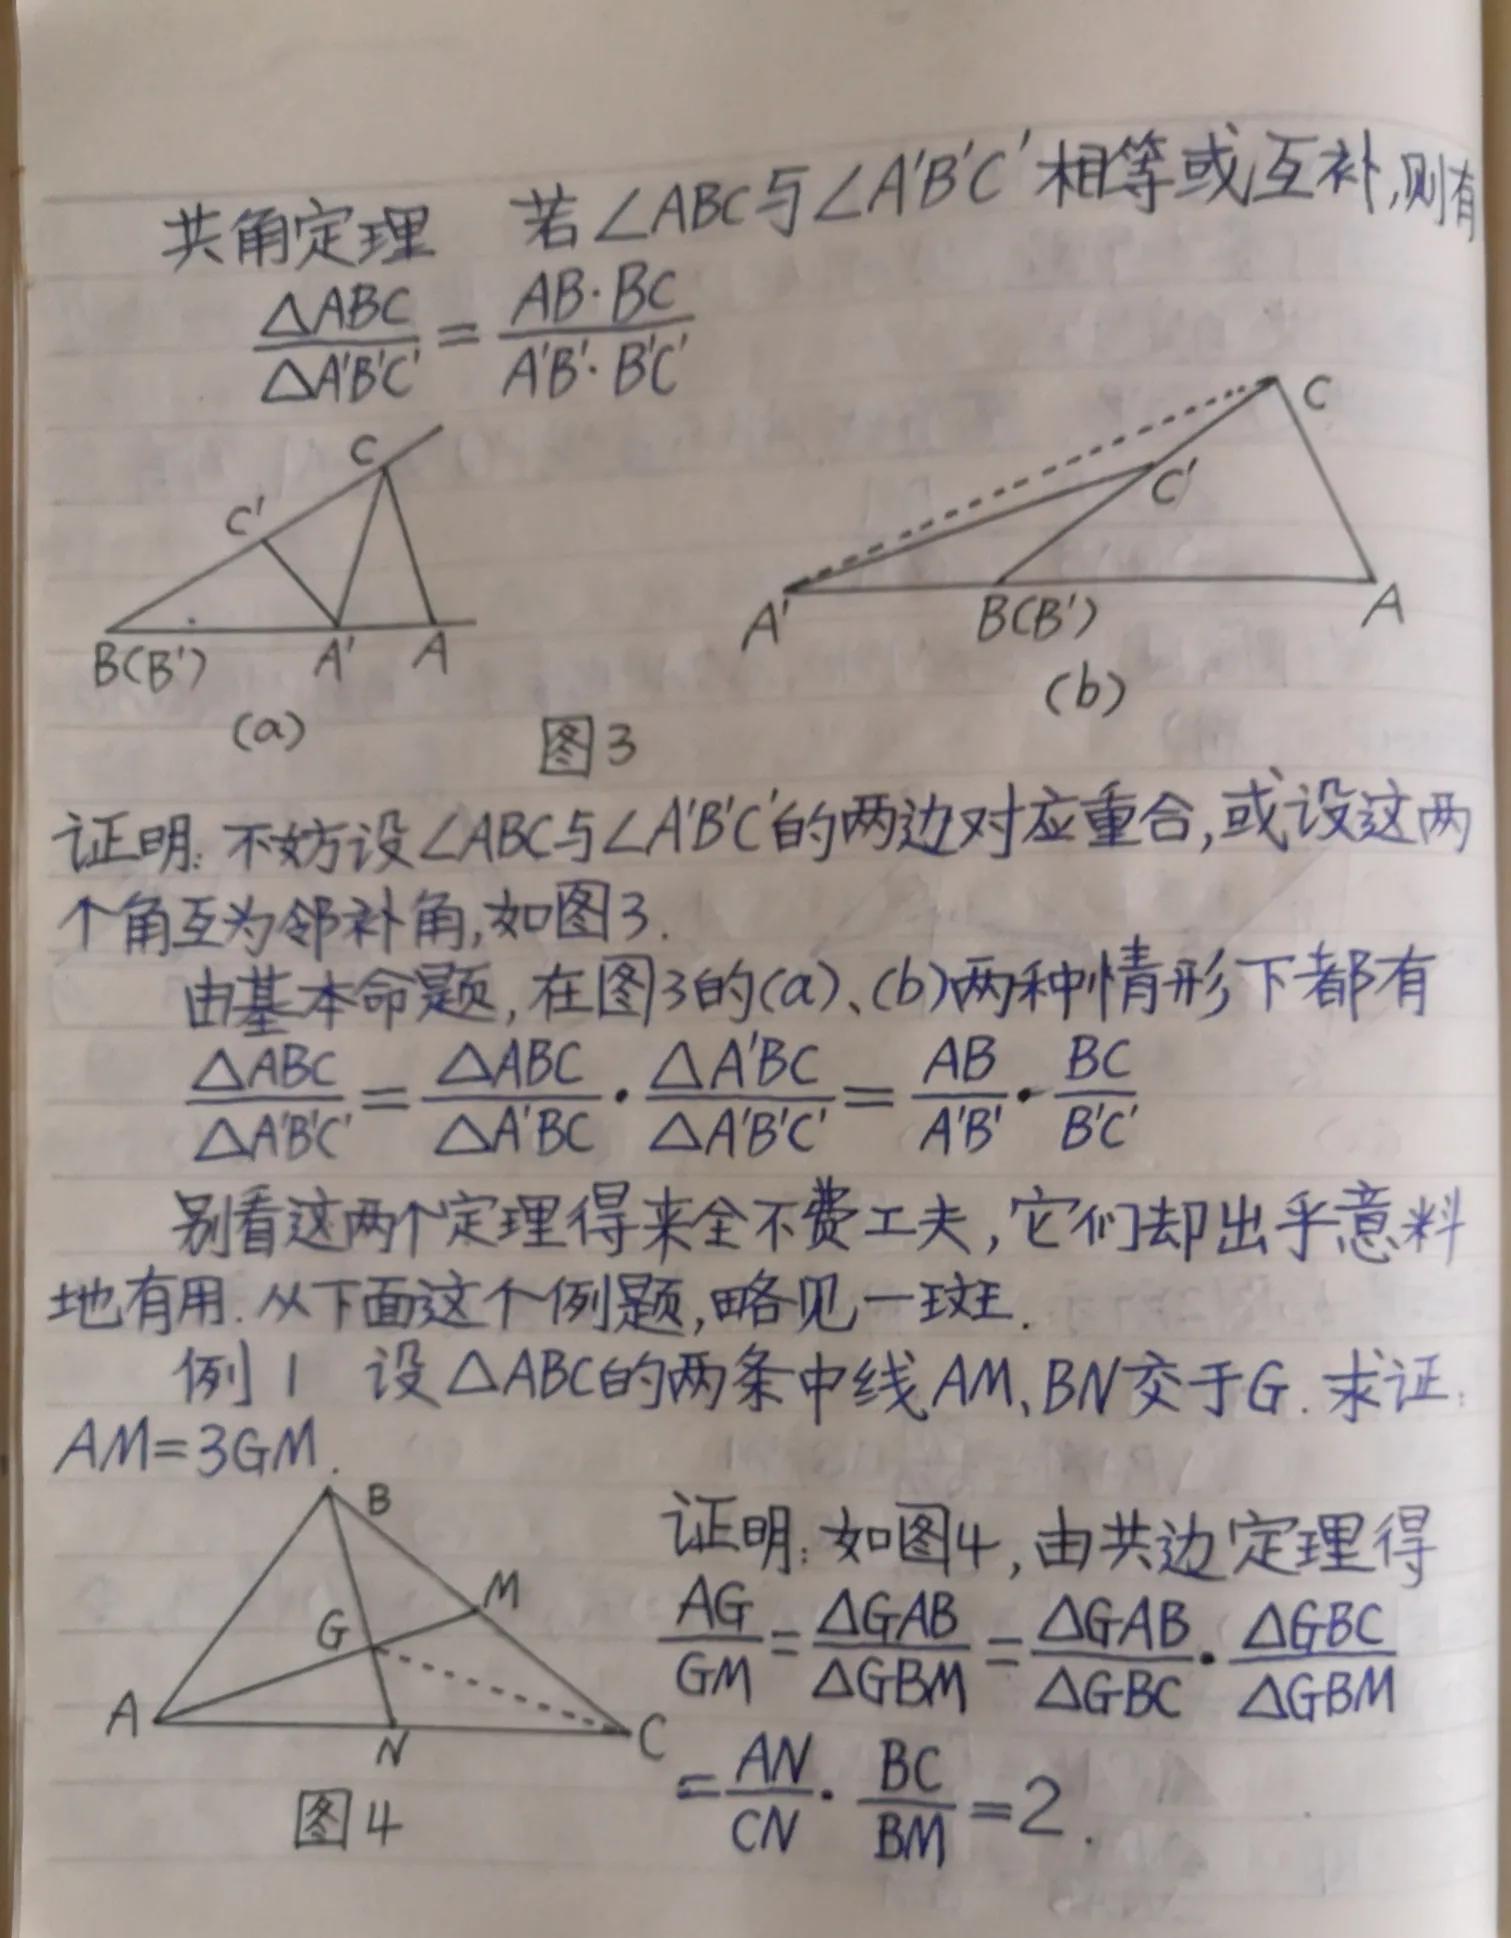 共角定理 若∠ABC与∠A'B'C'相等或互补,则有
△ABC/△A'B'C' = AB·BC/A'B'·B'C'
C
C'
B(B') A' A
(a)
C
C'
A' B(B') A
(b)
图3
证明:不妨设∠ABC与∠A'B'C'的两边对应重合,或设这两
个角互为邻补角,如图3.
由基本命题,在图3的(a)、(b)两种情形下都有
△ABC/△A'B'C' = △ABC/△A'BC · △A'BC/△A'B'C' = AB/A'B' · BC/B'C'
别看这两个定理得来全不费工夫,它们却出乎意料
地有用.从下面这个例题,略见一斑.
例1 设△ABC的两条中线AM、BN交于G.求证:
AM=3GM.
B
M
G
A N C
图4
证明:如图4,由共边定理得
AG/GM = △GAB/△GBM = △GAB/△GBC · △GBC/△GBM
= AN/CN · BC/BM = 2.